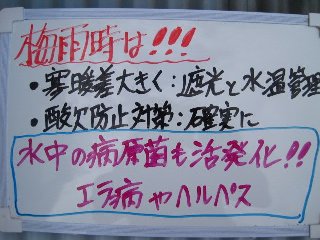 梅雨時は!!!
・寒暖差大きく:遮光と水温管理
・酸欠防止対策:確実に
水中の病原菌も活発化!!
エラ病やヘルペス